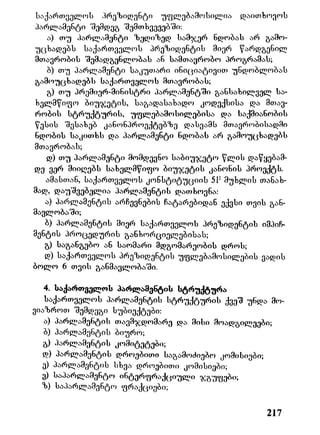 საქართველოს პრეზიდენტი უფლებამოსილია დაითხოვოს
პარლამენტი შემდეგ შემთხვევებში:
ა) თუ პარლამენტი ზედიზედ სამჯერ ნდობას არ გამო-
უცხადებს საქართველოს პრეზიდენტის მიერ წარდგენილ
მთავრობის შემადგენლობას ან სამთავრობო პროგრამას;
ბ) თუ პარლამენტი საკუთარი ინიციატივით უნდობლობას
გამოუცხადებს საქართველოს მთავრობას;
გ) თუ პრემიერ-მინისტრი პარლამენტში განსახილველ სა-
ხელმწიფო ბიუჯეტის, საგადასახადო კოდექსისა და მთავ-
რობის სტრუქტურის, უფლებამოსილებისა და საქმიანობის
წესის შესახებ კანონპროექტებზე დასვამს მთავრობისადმი
ნდობის საკითხს და პარლამენტი ნდობას არ გამოუცხადებს
მთავრობას;
დ) თუ პარლამენტი მომდევნო საბიუჯეტო წლის დაწყებამ-
დე ვერ მიიღებს სახელმწიფო ბიუჯეტის კანონის პროექტს.
ამასთან, საქართველოს კონსტიტუციის 51¹ მუხლის თანახ-
მად, დაუშვებელია პარლამენტის დათხოვნა:
ა) პარლამენტის არჩევნების ჩატარებიდან ექვსი თვის გან-
მავლობაში;
ბ) პარლამენტის მიერ საქართველოს პრეზიდენტის იმპიჩ-
მენტის პროცედურის განხორციელებისას;
გ) საგანგებო ან საომარი მდგომარეობის დროს;
დ) საქართველოს პრეზიდენტის უფლებამოსილების ვადის
ბოლო 6 თვის განმავლობაში.
4. საქართველოს პარლამენტის სტრუქტურა
საქართველოს პარლამენტის სტრუქტურის ქვეშ უნდა მო-
ვიაზროთ შემდეგი სუბიექტები:
ა) პარლამენტის თავმჯდომარე და მისი მოადგილეები;
ბ) პარლამენტის ბიურო;
გ) პარლამენტის კომიტეტები;
დ) პარლამენტის დროებითი საგამოძიებო კომისიები;
ე) პარლამენტის სხვა დროებითი კომისიები;
ვ) საპარლამენტო ინტერფრაქციული ჯგუფები;
ზ) საპარლამენტო ფრაქციები;
217